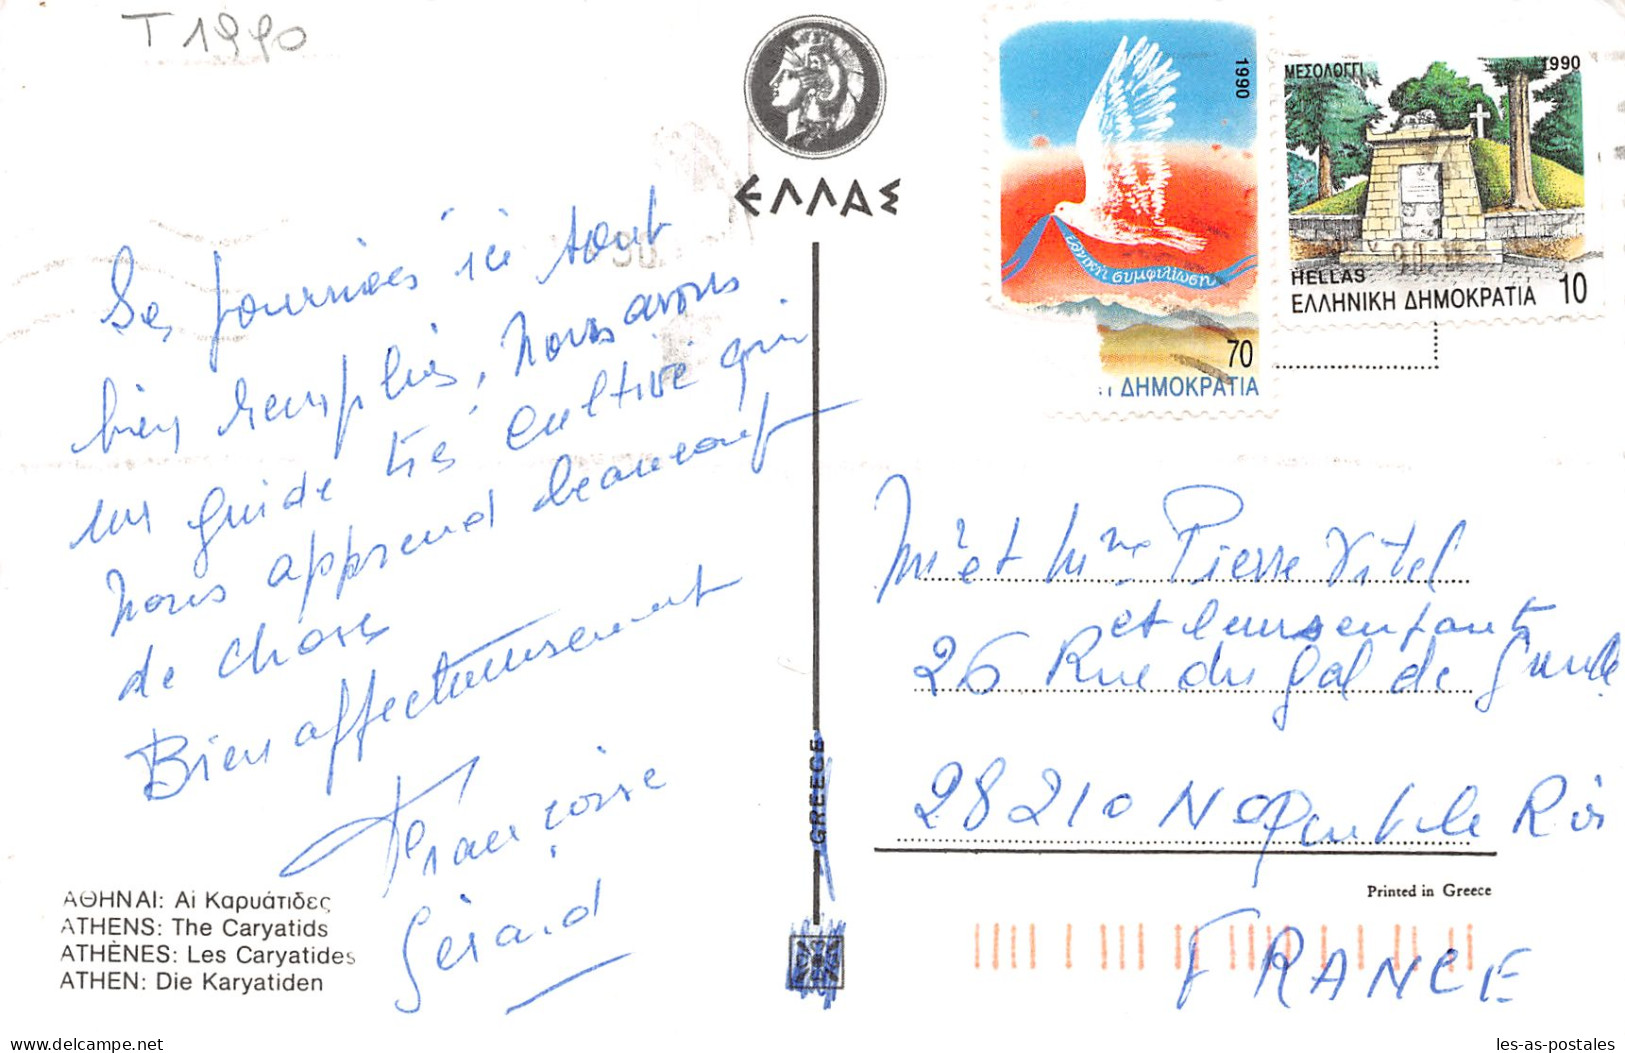 T 1990
ΕΛΛΑΣ
1990
εθνική συμφιλίωση
70
ΔΗΜΟΚΡΑΤΙΑ
ΜΕΣΟΛΟΓΓΙ
1990
HELLAS
ΕΛΛΗΝΙΚΗ ΔΗΜΟΚΡΑΤΙΑ 10
journées ici tout
bien remplies, nous avons
un guide très cultivé qui
nous apprend beaucoup
de choses
Bien affectueusement
Françoise
Gérard
Mr et Mme Pierre Vitel
et leurs enfants
26 Rue du Gal de Gaulle
28210 Nogent le Roi
FRANCE
GREECE
Printed in Greece
ΑΘΗΝΑΙ: Αἱ Καρυάτιδες
ATHENS: The Caryatids
ATHÈNES: Les Caryatides
ATHEN: Die Karyatiden
les-as-postales